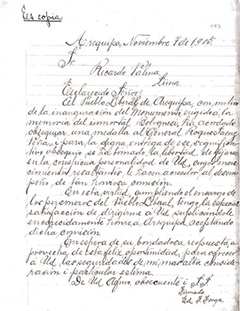 Es copia
Arequipa, Noviembre 7 de 1905
Sr.
Ricardo Palma
Lima
Esclarecido Señor:
El Pueblo Liberal de Arequipa, con motivo
de la inauguración del Monumento erigido a la
memoria del inmortal Bolognesi, ha acordado
obsequiar, una medalla al General Roque Saenz
Peña; y para la digna entrega de ese significa-
tivo obsequio se ha tomado la libertad de fijarse
en la conspicua personalidad de Ud, cuyos mere-
cimientos le hacen acreedor al desem-
peño, de tan honrosa comisión.
En esta virtud, cumpliendo el encargo de
los personeros del Pueblo Liberal, tengo la especial
satisfacción de dirigirme a Ud suplicándole
honre a Arequipa, aceptando
dicha comisión
En espera de su bondadosa respuesta a-
provecho de esta feliz oportunidad, para ofrecer
a Ud, las seguridades de mi mas alta conside-
ración i particular estima.
De Ud Afmo. obsecuente i S. S.
Firmado